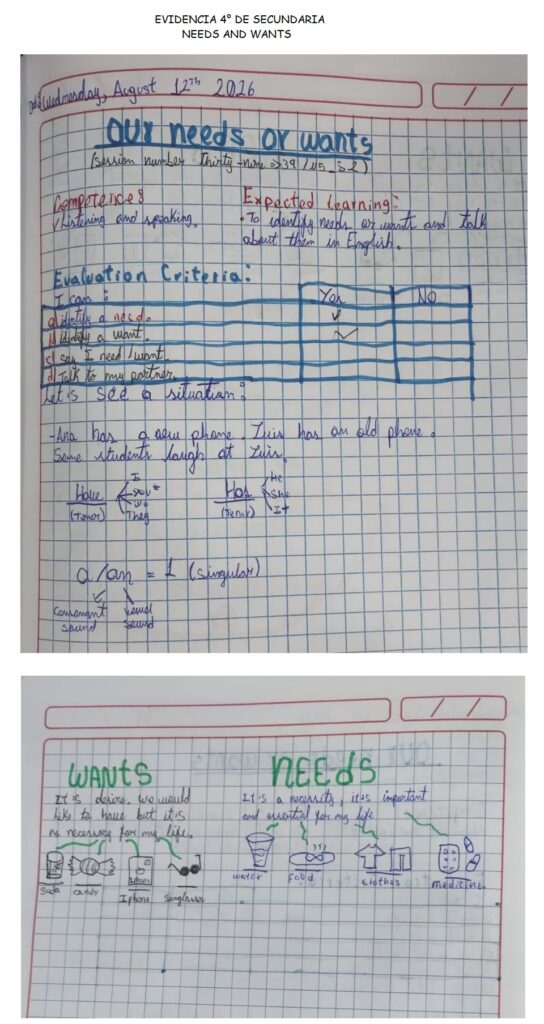 EVIDENCIA 4° DE SECUNDARIA
NEEDS AND WANTS
Wednesday, August 12TH 2026
OUR needs or wants
(Session number Thirty-nine => 39 / U5_S2)
Competences
Expected learning:
✓ Listening and speaking.
• To identify needs or want and talk
about them in English.
Evaluation Criteria:
I can :
Yes
NO
a) identify a need.
b) identify a want.
c) say I need / want.
d) Talk to my partner.
Let's see a situation:
- Ana has a new phone. Luis has an old phone.
Some students laugh at Luis.
Have
I
You
We
They
(Tener)
Has
He
She
It
(Tener)
a/an = 1 (singular)
Consonant
sound
Vowel
sound
WANTS
NEEDS
It's desire, we would
like to have but it is
no necessary for my life.
It's a necessity, it is important
and essential for my life
soda
candy
Iphone
Sunglasses
water
food
clothes
medicine